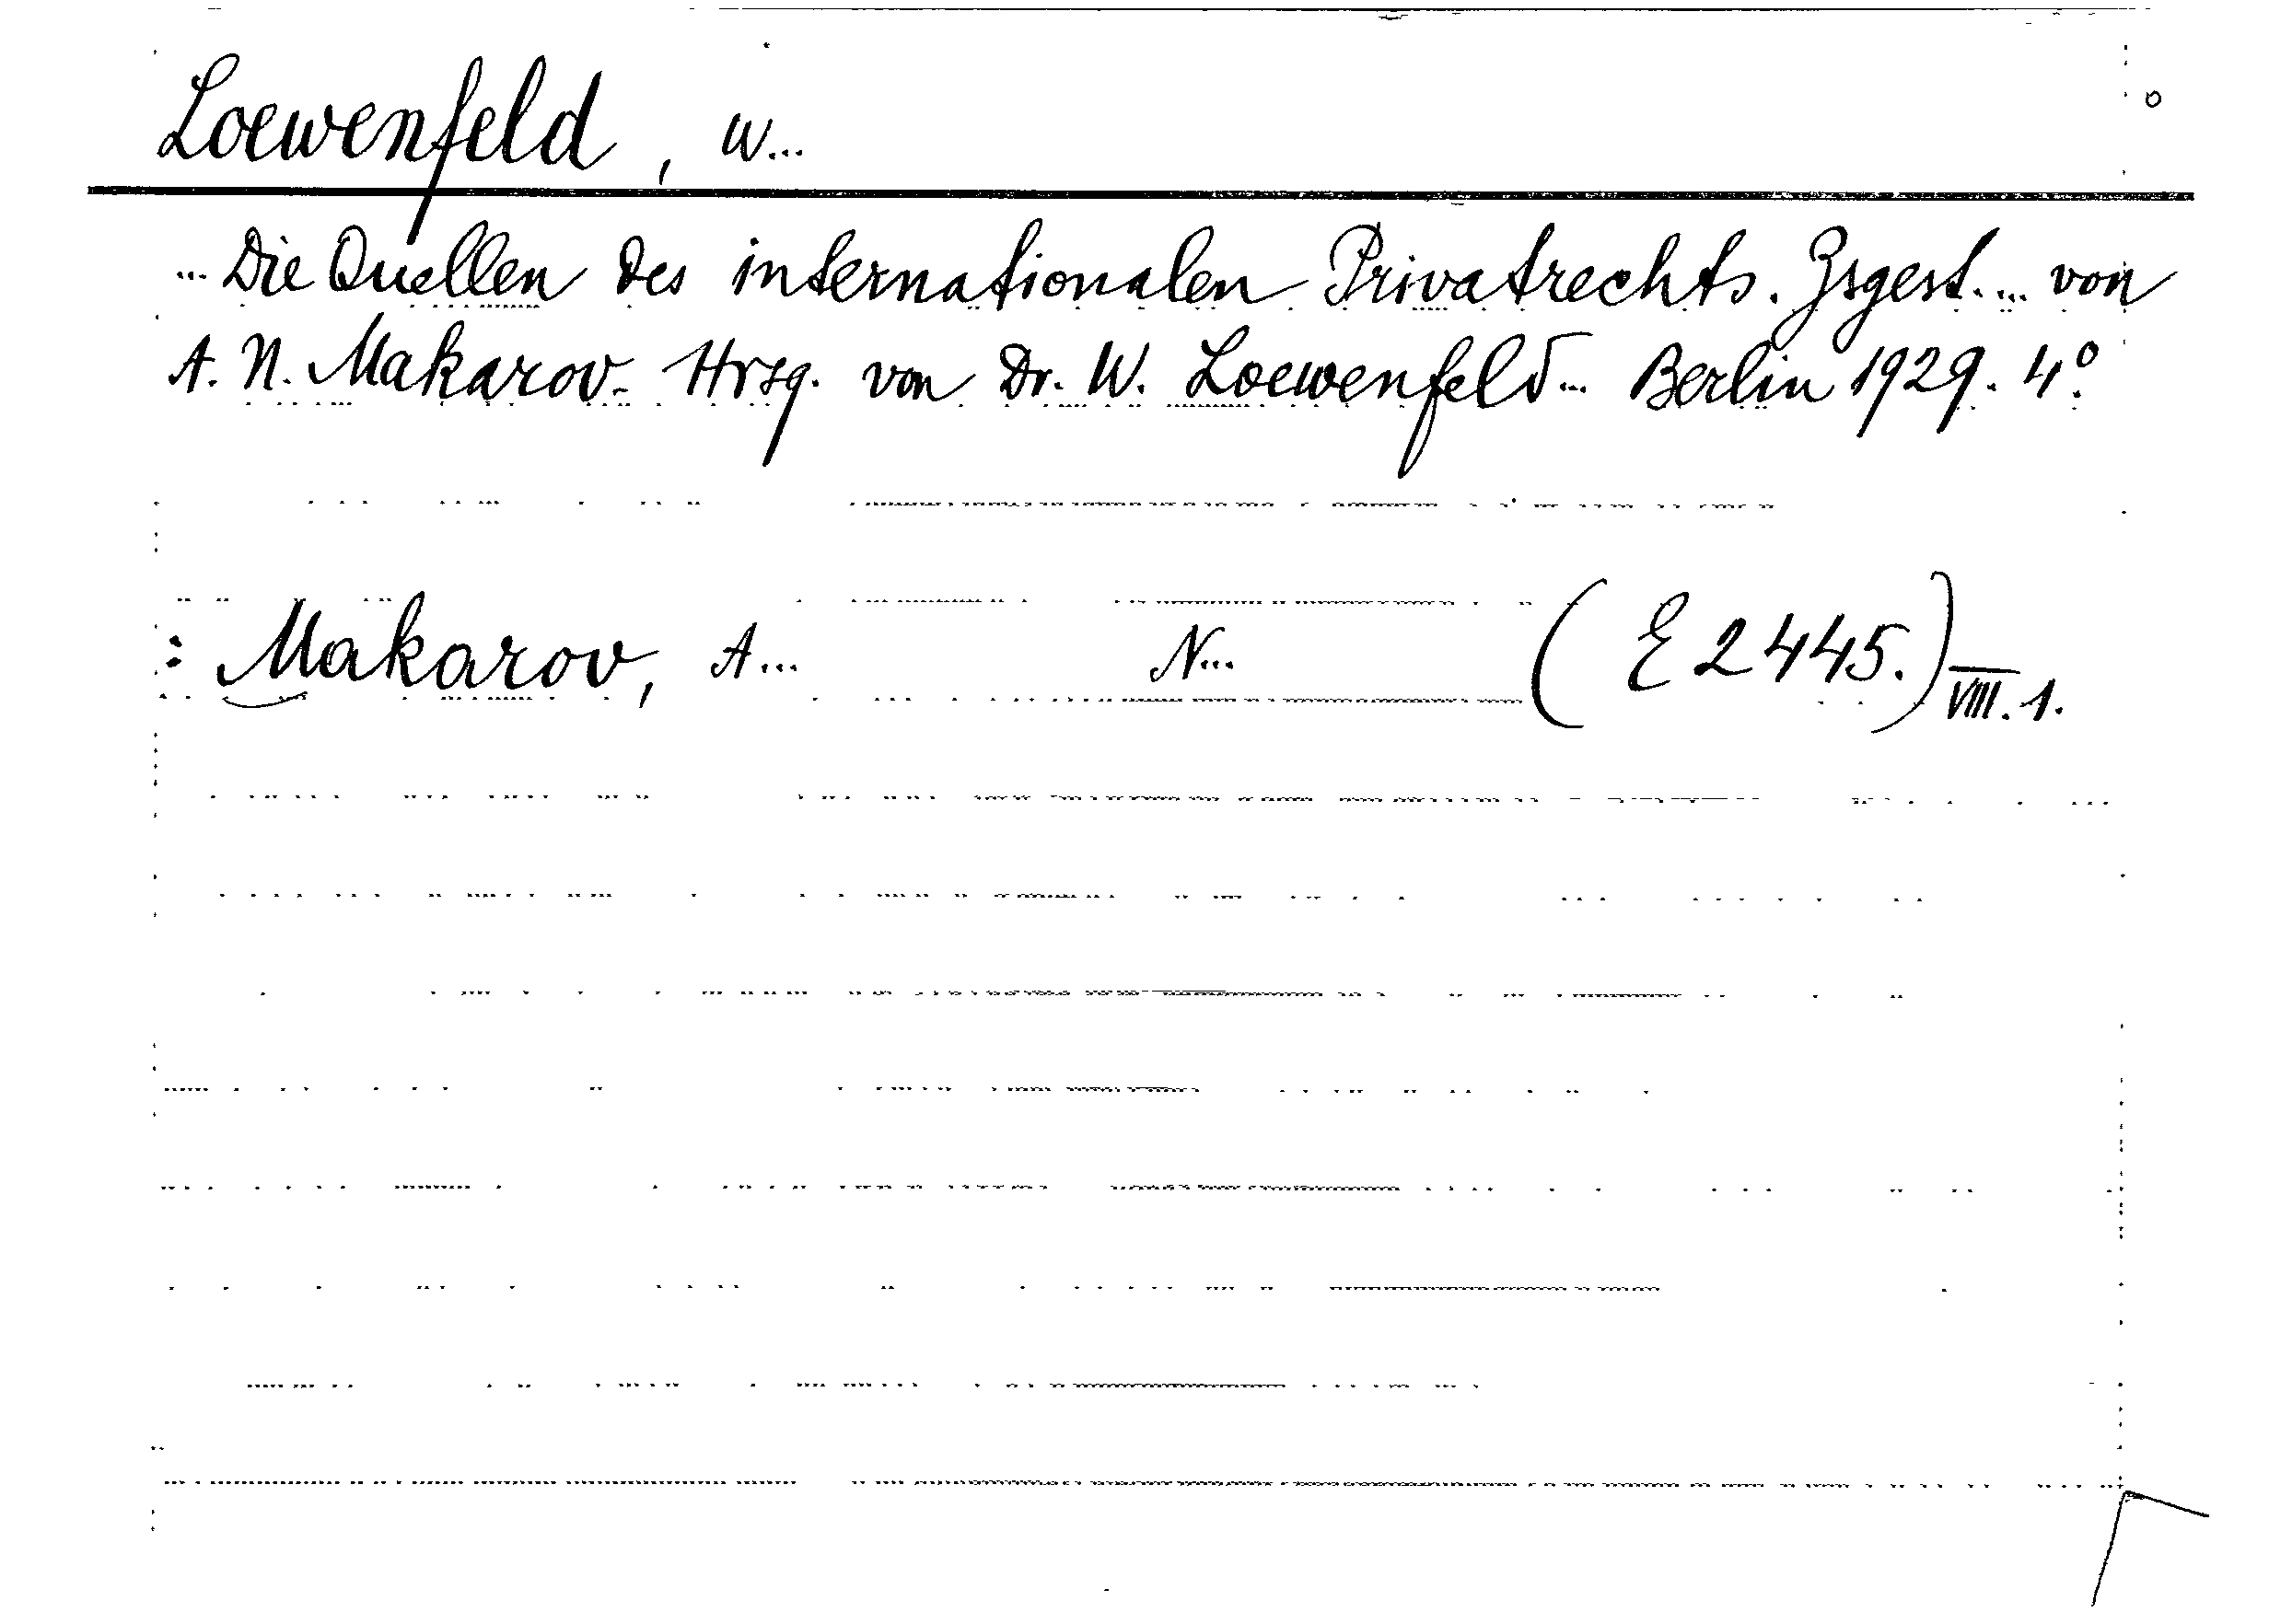 Loewenfeld, W...
... Die Quellen des internationalen Privatrechts. Zsgest.... von
A. N. Makarov. Hrsg. von Dr. W. Loewenfeld... Berlin 1929. 4º.
: Makarov, A... N... (E 2445.) VIII. 1.